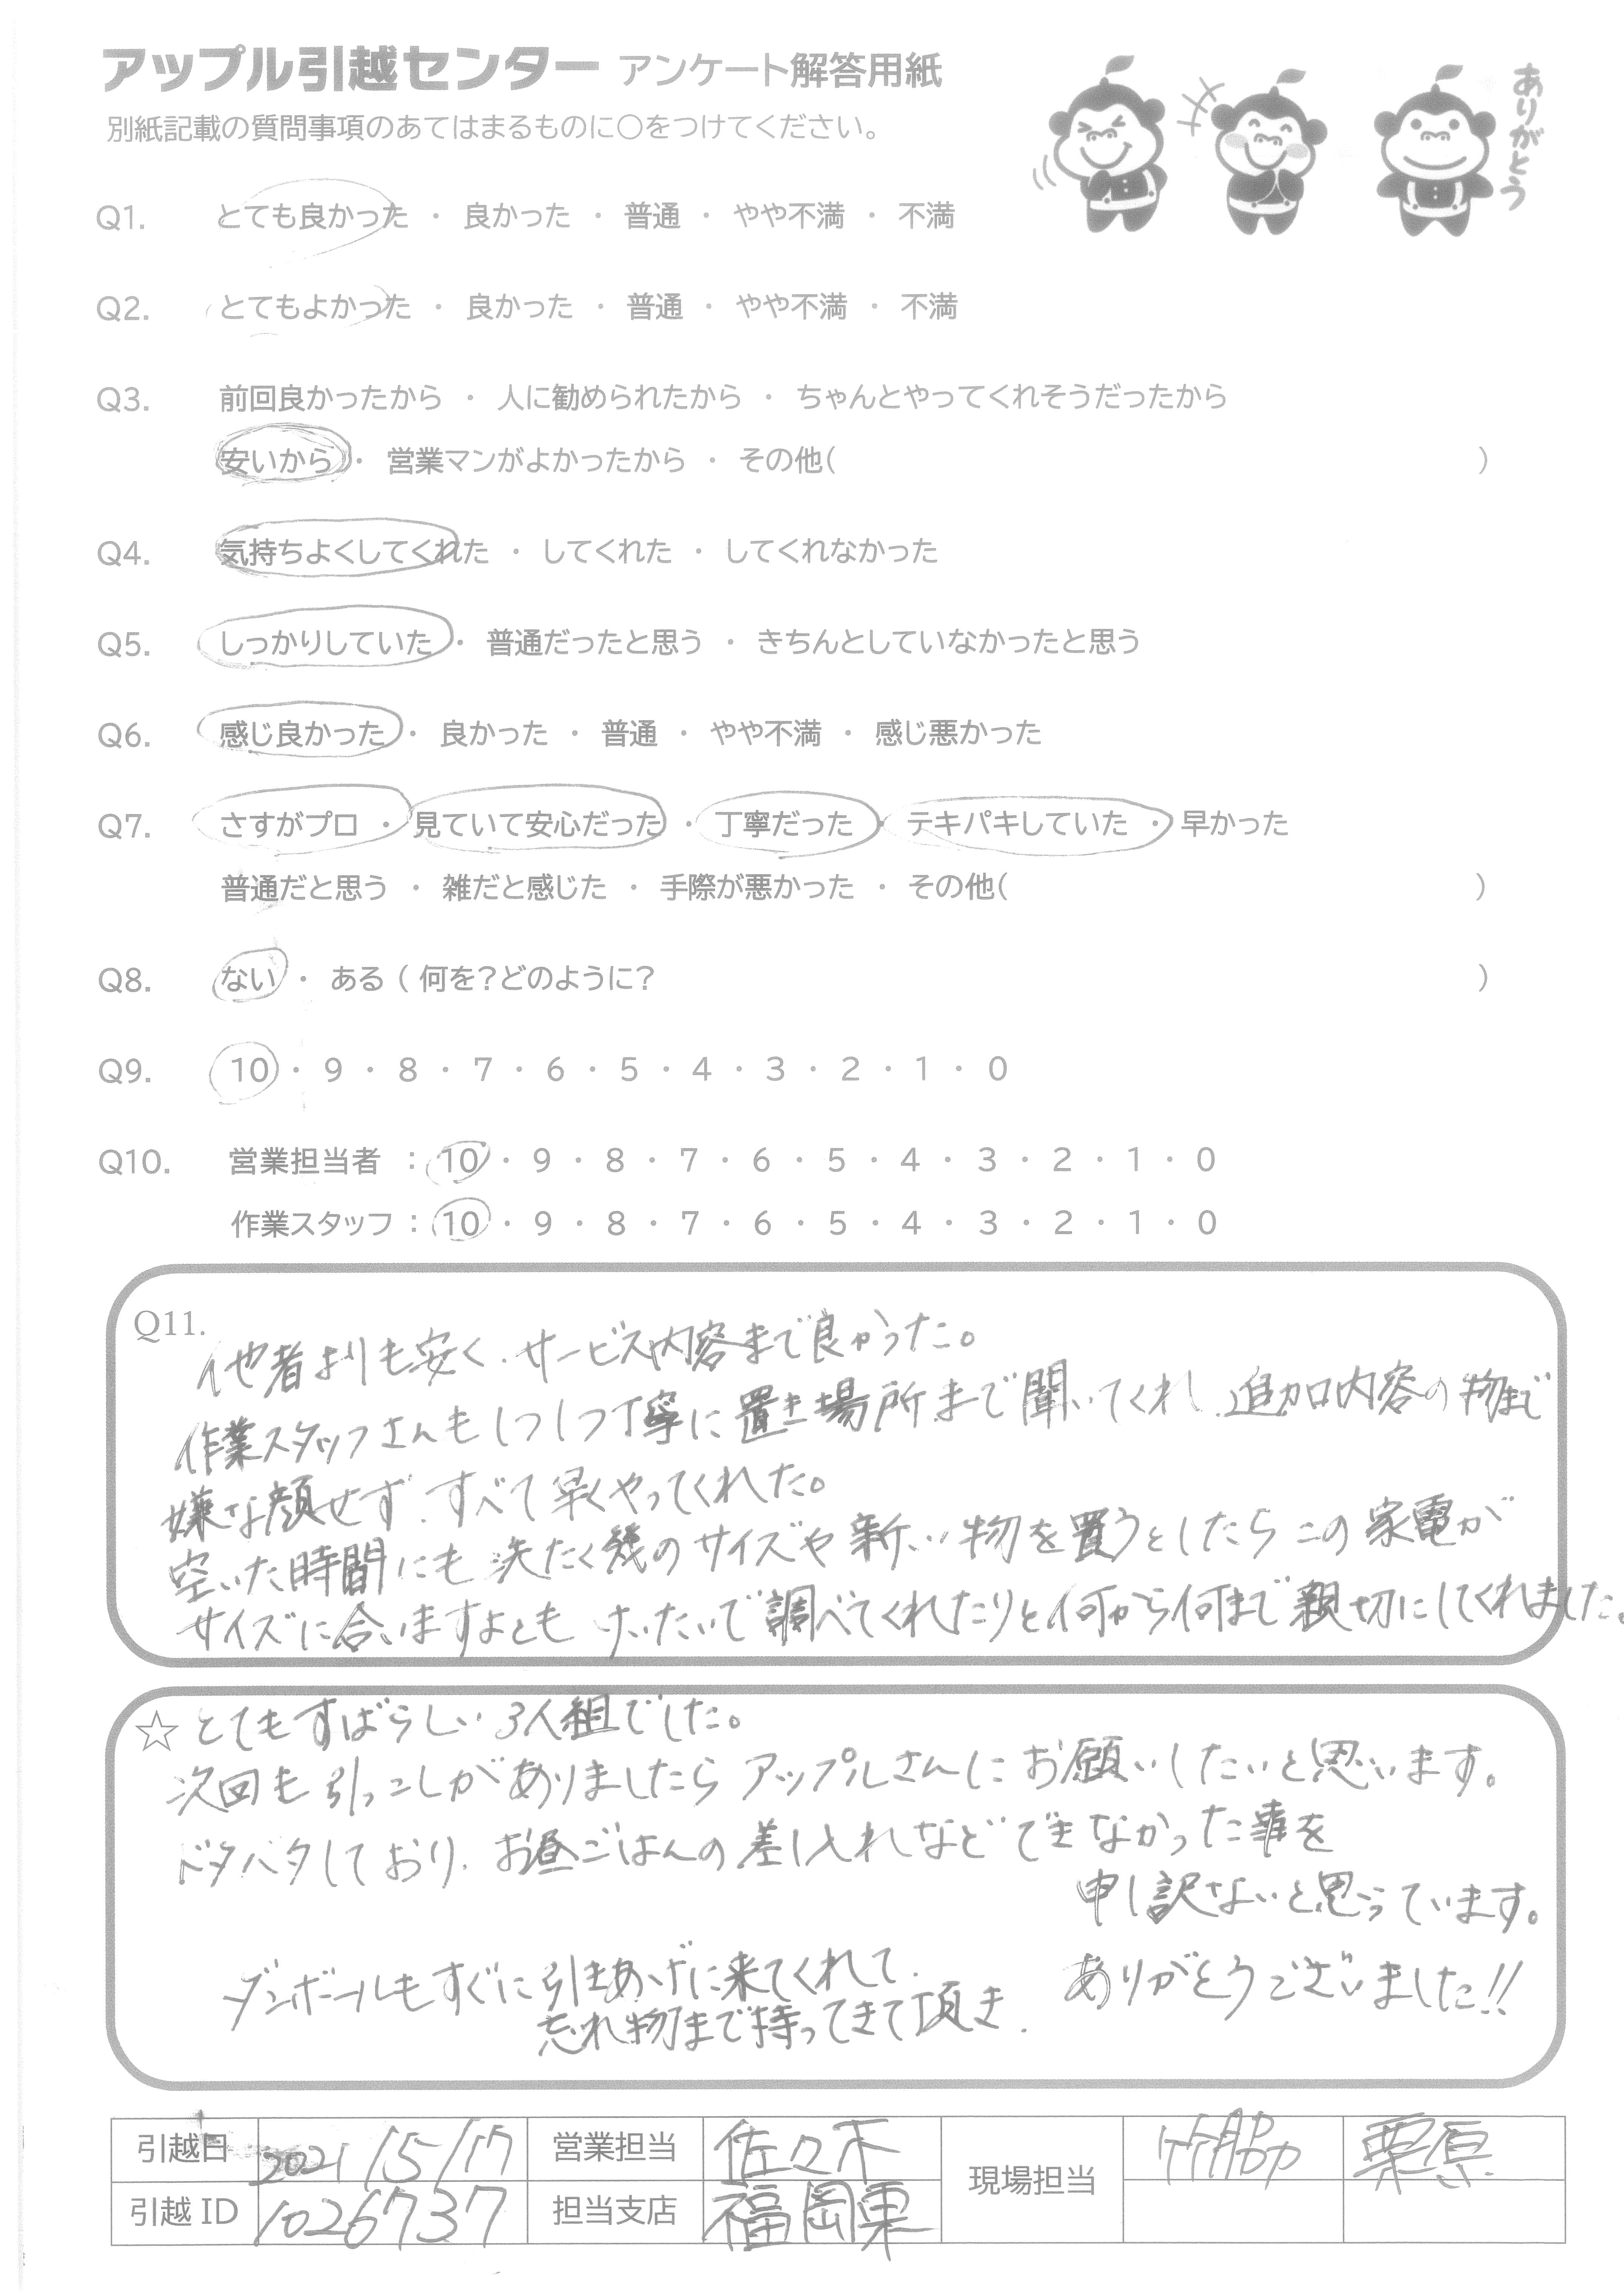 アップル引越センター アンケート解答用紙
ありがとう
別紙記載の質問事項のあてはまるものに〇をつけてください。
Q1. とても良かった ・ 良かった ・ 普通 ・ やや不満 ・ 不満
Q2. とてもよかった ・ 良かった ・ 普通 ・ やや不満 ・ 不満
Q3. 前回良かったから ・ 人に勧められたから ・ ちゃんとやってくれそうだったから
安いから ・ 営業マンがよかったから ・ その他( )
Q4. 気持ちよくしてくれた ・ してくれた ・ してくれなかった
Q5. しっかりしていた ・ 普通だったと思う ・ きちんとしていなかったと思う
Q6. 感じ良かった ・ 良かった ・ 普通 ・ やや不満 ・ 感じ悪かった
Q7. さすがプロ ・ 見ていて安心だった ・ 丁寧だった ・ テキパキしていた ・ 早かった
普通だと思う ・ 雑だと感じた ・ 手際が悪かった ・ その他( )
Q8. ない ・ ある ( 何を?どのように? )
Q9. 10 ・ 9 ・ 8 ・ 7 ・ 6 ・ 5 ・ 4 ・ 3 ・ 2 ・ 1 ・ 0
Q10. 営業担当者 : 10 ・ 9 ・ 8 ・ 7 ・ 6 ・ 5 ・ 4 ・ 3 ・ 2 ・ 1 ・ 0
作業スタッフ : 10 ・ 9 ・ 8 ・ 7 ・ 6 ・ 5 ・ 4 ・ 3 ・ 2 ・ 1 ・ 0
Q11. 他者よりも安く、サービス内容まで良かった。
作業スタッフさんも1つ1つ丁寧に置き場所まで聞いてくれ、追加内容の物まで
嫌な顔せず、すべて早くやってくれた。
空いた時間にも洗たく幾のサイズや新しい物を買うとしたらこの家電が
サイズに合いますよとも けいたいで調べてくれたりと何から何まで親切にしてくれました。
☆ とてもすばらしい3人組でした。
次回も引っこしがありましたらアップルさんにお願いしたいと思います。
ドタバタしており、お昼ごはんの差し入れなどできなかった事を
申し訳ないと思っています。
ダンボールもすぐに引きあげに来てくれて、
忘れ物まで持ってきて頂き、
ありがとうございました!!
引越日 2021/5/17 営業担当 佐々木 現場担当 栗原
引越 ID 1026737 担当支店 福岡東